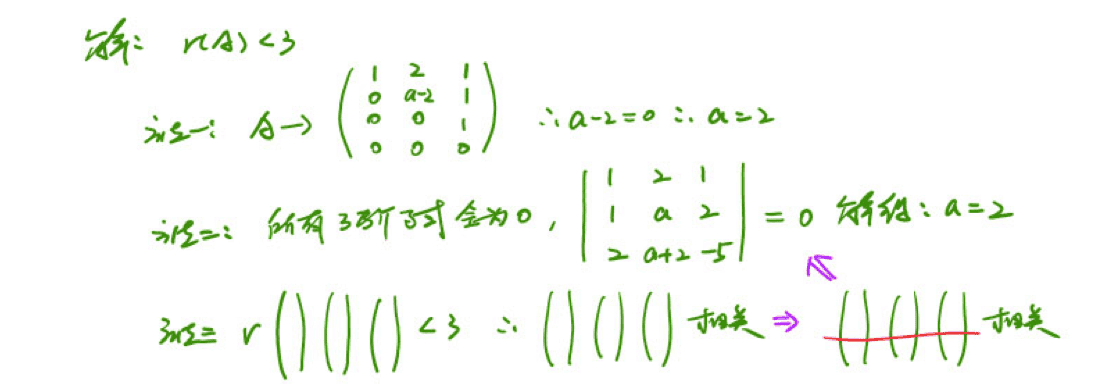 解: r(A)<3
法一: A→ (1 2 1; 0 a-2 1; 0 0 1; 0 0 0) ∴a-2=0 ∴a=2
法二: 所有3阶子式全为0, |1 2 1; 1 a 2; 2 a+2 -5| = 0 解得: a=2
法三 r ( ) ( ) ( ) <3 ∴ ( ) ( ) ( ) 相关 ⇒ ( ) ( ) ( ) 相关